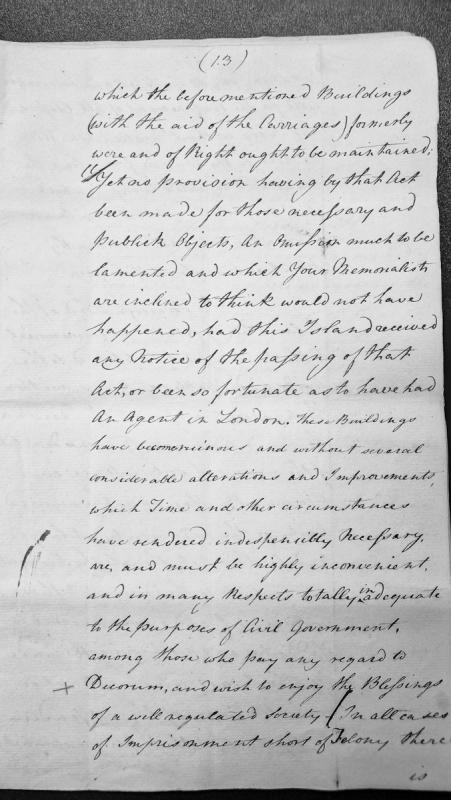 (13)
which the before mentioned Buildings
(with the aid of the Carriages) formerly
were and of Right ought to be maintained;
Yet no provision having by that Act
been made for those necessary and
publick Objects, An Omission much to be
lamented and which Your Memorialists
are inclined to think would not have
happened, had this Island received
any Notice of the passing of that
Act, or been so fortunate as to have had
An Agent in London. These Buildings
have become ruinous and without several
considerable alterations and Improvements,
which Time and other circumstances
have rendered indispensilly Necessary,
are, and must be highly inconvenient,
and in many Respects totally inadequate
to the purposes of Civil Government,
among those who pay any regard to
+ Decorum, and wish to enjoy the Blessings
of a well regulated Society / In all cases
of Imprisonment short of Felony there
is